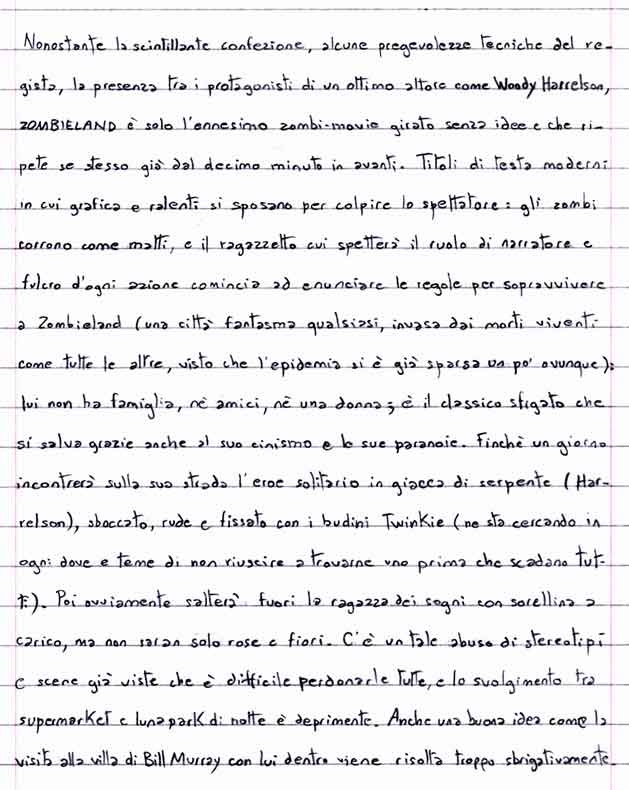 Nonostante la scintillante confezione, alcune pregevolezze tecniche del re-
gista, la presenza tra i protagonisti di un ottimo attore come Woody Harrelson,
ZOMBIELAND è solo l'ennesimo zombi-movie girato senza idee e che ri-
pete se stesso già dal decimo minuto in avanti. Titoli di testa moderni
in cui grafica e ralenti si sposano per colpire lo spettatore: gli zombi
corrono come matti, e il ragazzetto cui spetterà il ruolo di narratore e
fulcro d'ogni azione comincia ad enunciare le regole per sopravvivere
a Zombieland (una città fantasma qualsiasi, invasa dai morti viventi
come tutte le altre, visto che l'epidemia si è già sparsa un po' ovunque):
lui non ha famiglia, nè amici, nè una donna; è il classico sfigato che
si salva grazie anche al suo cinismo e le sue paranoie. Finchè un giorno
incontrerà sulla sua strada l'eroe solitario in giacca di serpente (Har-
relson), sboccato, rude e fissato con i budini Twinkie (ne sta cercando in
ogni dove e teme di non riuscire a trovarne uno prima che scadano tut-
ti). Poi ovviamente salterà fuori la ragazza dei sogni con sorellina a
carico, ma non saran solo rose e fiori. C'è un tale abuso di stereotipi
e scene già viste che è difficile perdonarle tutte, e lo svolgimento tra
supermarket e luna park di notte è deprimente. Anche una buona idea come la
visita alla villa di Bill Murray con lui dentro viene risolta troppo sbrigativamente.